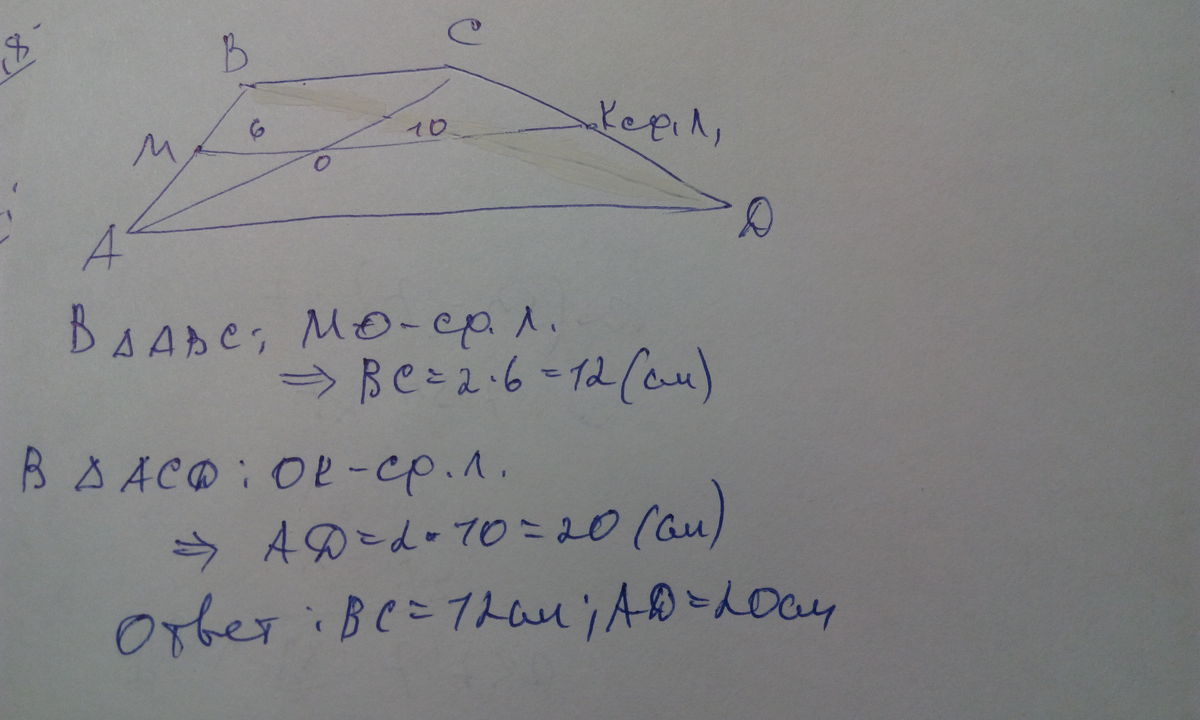 B
C
M
6
10
K ср.л,
O
A
D
В △ABC; MO - ср. л.
⇒ BC = 2·6 = 12 (см)
В △ACD: OK - ср. л.
⇒ AD = 2·10 = 20 (см)
Ответ: BC = 12см; AD = 20см